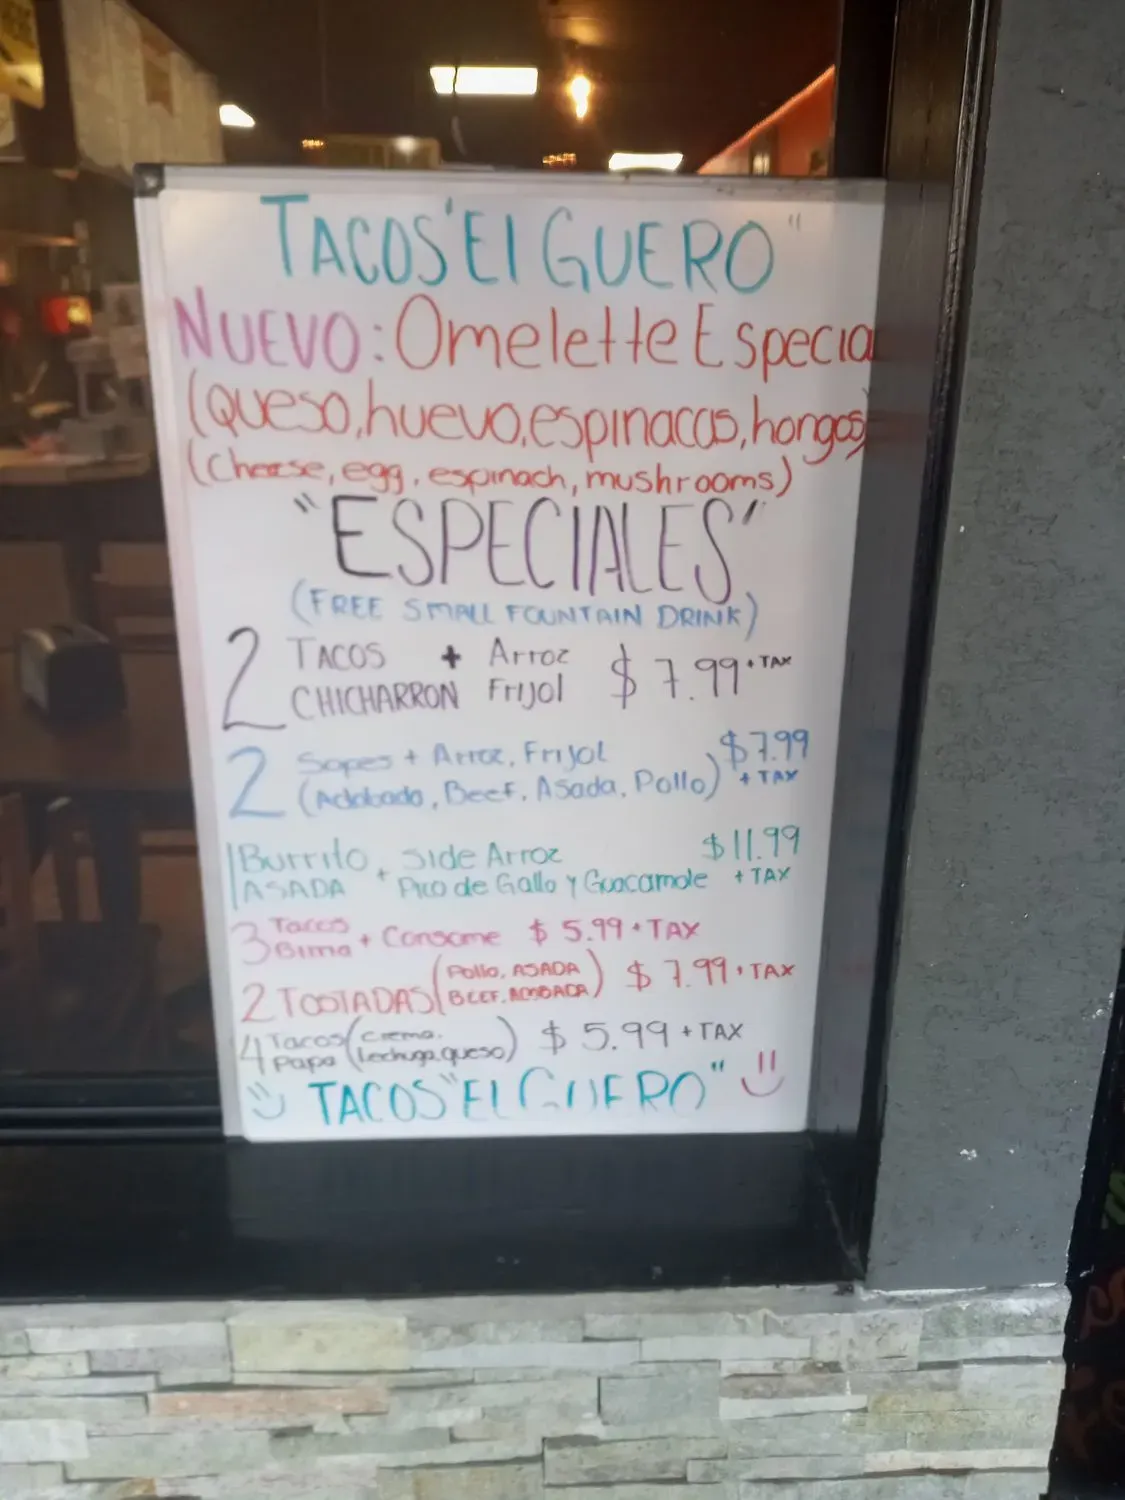 TACOS "El GUERO"
NUEVO: Omelette Especial
(queso, huevo, espinacas, hongos)
(cheese, egg, espinach, mushrooms)
"ESPECIALES"
(FREE SMALL FOUNTAIN DRINK)
2 TACOS + Arroz $ 7.99 + TAX
CHICHARRON Frijol
2 Sopes + Arroz, Frijol $7.99
(Adobado, Beef, Asada, Pollo) + TAX
1 Burrito + Side Arroz $11.99
ASADA Pico de Gallo y Guacamole + TAX
3 Tacos + Consome $ 5.99 + TAX
2 TOSTADAS (Pollo, ASADA $ 7.99 + TAX
BEEF,
4 Tacos (crema, $ 5.99 + TAX
Papa lechuga, queso)
TACOS "El GUERO"